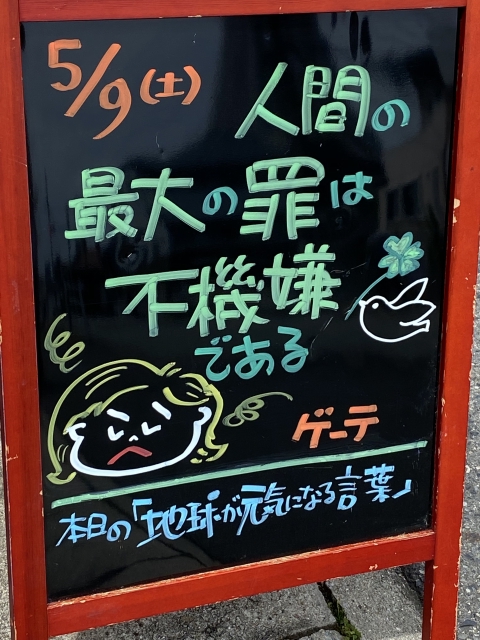 5/9(土)
人間の
最大の罪は
不機嫌
である
ゲーテ
本日の「地球が元気になる言葉」